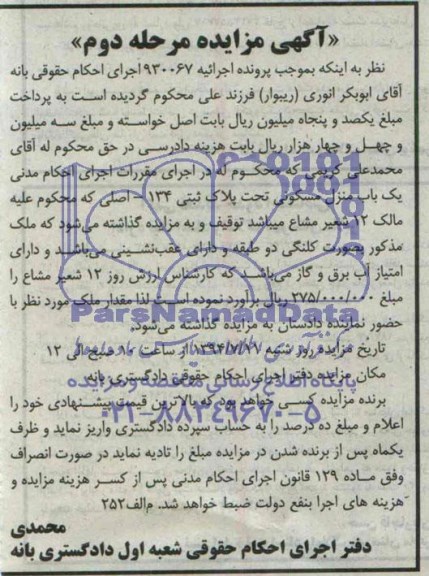 «آگهی مزایده مرحله دوم»
نظر به اینکه بموجب پرونده اجرائیه ۹۳۰۰۶۷ اجرای احکام حقوقی بانه
آقای ابوبکر انوری (ریبوار) فرزند علی محکوم گردیده است به پرداخت
مبلغ یکصد و پنجاه میلیون ریال بابت اصل خواسته و مبلغ سه میلیون
و چهل و چهار هزار ریال بابت هزینه دادرسی در حق محکوم له آقای
محمدعلی کریمی که محکوم له در اجرای مقررات اجرای احکام مدنی
یک باب منزل مسکونی تحت پلاک ثبتی ۱۳۴ - اصلی که محکوم علیه
مالک ۱۲ شعیر مشاع میباشد توقیف و به مزایده گذاشته می‌شود که ملک
مذکور بصورت کلنگی دو طبقه و دارای عقب‌نشینی می‌باشد و دارای
امتیاز آب برق و گاز می‌باشد که کارشناس ارزش روز ۱۲ شعیر مشاع را
مبلغ ۲۷۵/۰۰۰/۰۰۰ ریال برآورد نموده است لذا مقدار ملک مورد نظر با
حضور نماینده دادستان به مزایده گذاشته می‌شود.
ParsNamadData
تاریخ مزایده روز شنبه ۱۳۹۴/۷/ از ساعت ۱۰ صبح الی ۱۲
مکان مزایده دفتر اجرای احکام حقوقی دادگستری بانه
پایگاه اطلاع رسانی مناقصه و مزایده
برنده مزایده کسی خواهد بود که بالاترین قیمت پیشنهادی خود را
۰۲۱-۸۸۳۴۹۶۷۰-۵
اعلام و مبلغ ده درصد را به حساب سپرده دادگستری واریز نماید و ظرف
یکماه پس از برنده شدن در مزایده مبلغ را تادیه نماید در صورت انصراف
وفق ماده ۱۲۹ قانون اجرای احکام مدنی پس از کسر هزینه مزایده و
هزینه های اجرا بنفع دولت ضبط خواهد شد. م‌الف۲۵۲
محمدی
دفتر اجرای احکام حقوقی شعبه اول دادگستری بانه